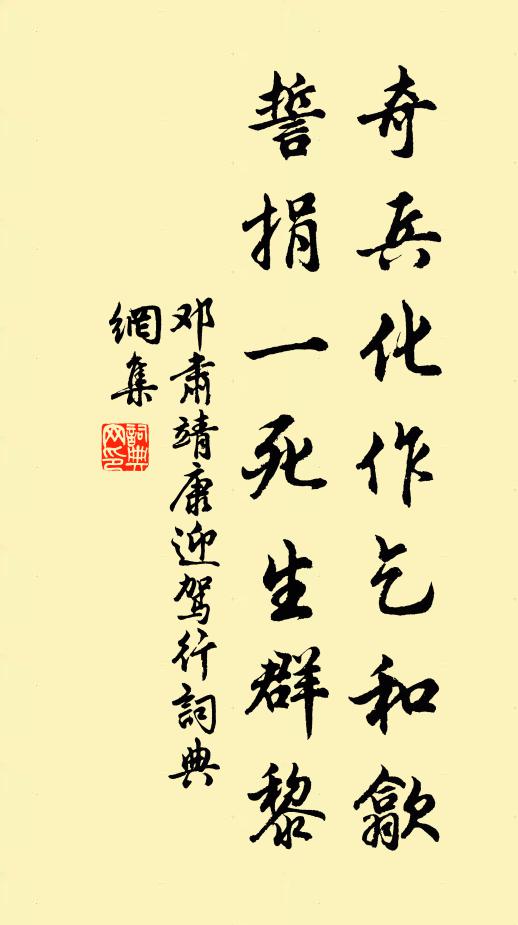 奇兵化作乞和歙
誓捐一死生群黎
邓肃靖康迎驾行詞典
網集
詞典
网印